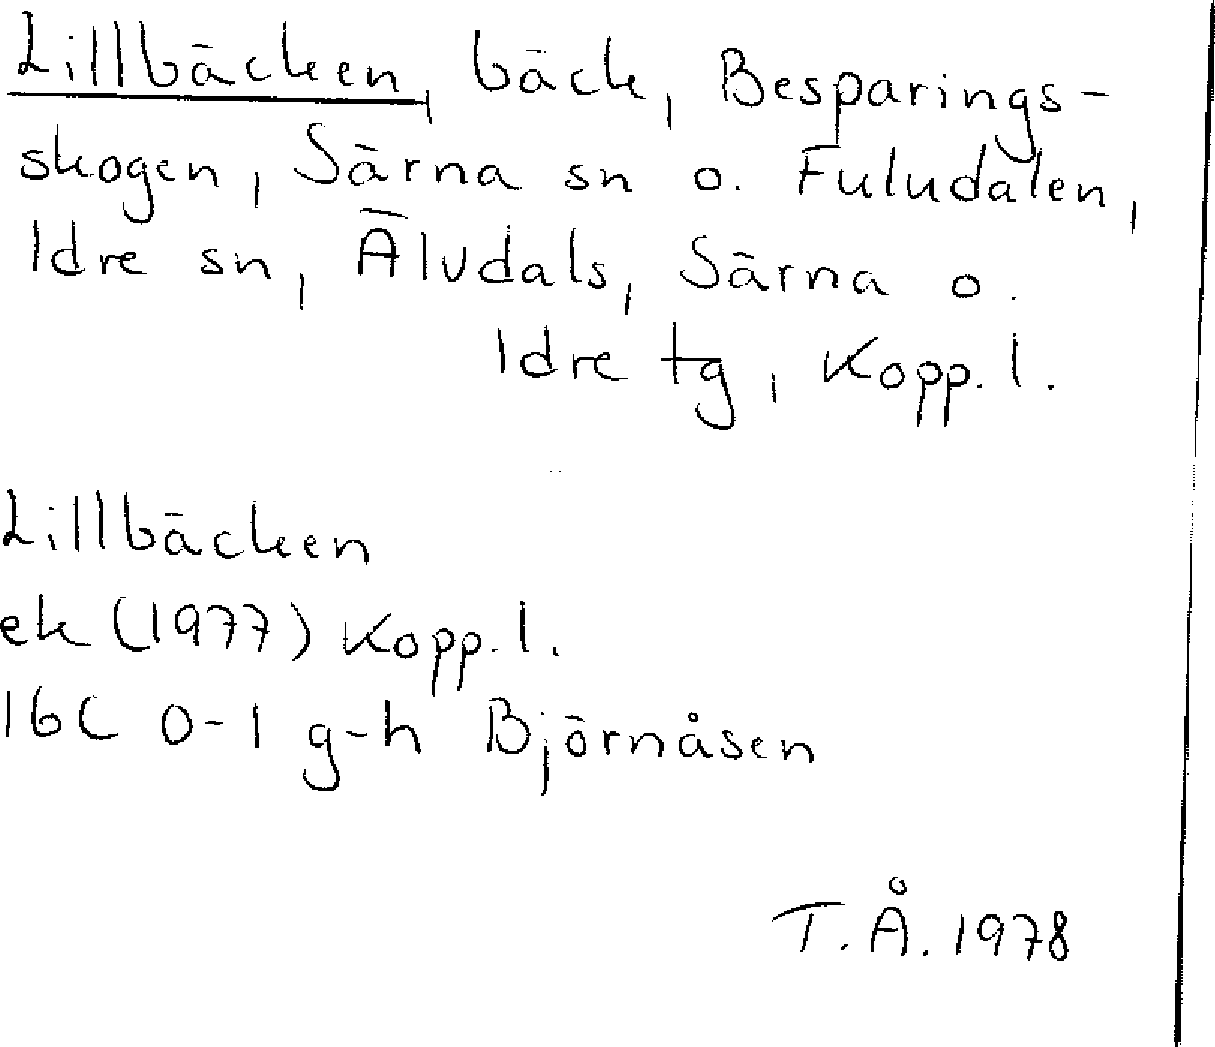 Lillbäcken, bäck, Besparings-
skogen, Särna sn o. Fuludalen,
Idre sn, Älvdals, Särna o.
Idre tg, Kopp. l.
Lillbäcken
ek (1977) Kopp. l.
16C 0-1 g-h Björnåsen
T. Å. 1978